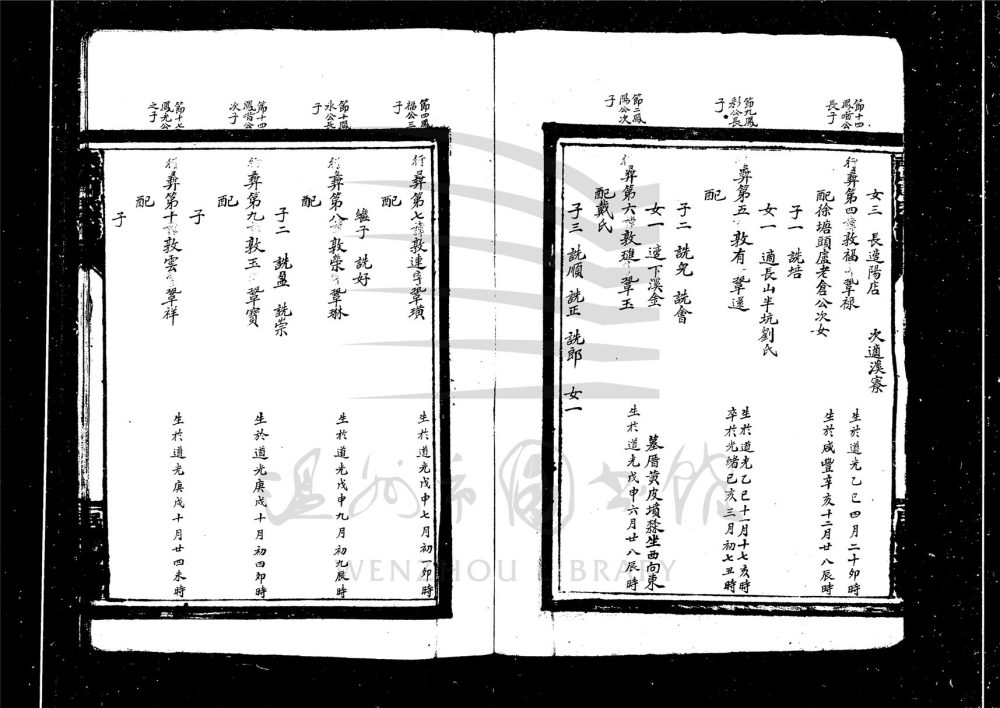 女三 長適陽店 次適溪寮
節十四鳳喈公長子
行彝第四 敦福 鞏祿 生於道光乙巳四月二十卯時
配徐塘頭盧老倉公次女 生於咸豐辛亥十二月廿八辰時
子一 詵培
女一 適長山半坑劉氏
節九鳳彩公長子
彝第五 敦有 鞏還 生於道光乙巳十一月十七亥時
卒於光緒己亥三月初七丑時
配
子二 詵允 詵會
女一 適下溪金 墓厝黃皮墳 坐西向東
節二鳳陽公次子
行彝第六 敦璡 鞏玉 生於道光戊申六月廿八辰時
配戴氏
子三 詵順 詵正 詵郎 女一
節四鳳福公三子
行彝第七 敦連 字鞏瓆 生於道光戊申七月初一卯時
配
繼子 詵好
節十鳳水公長子
行彝第八 敦榮 鞏琳 生於道光戊申九月初九辰時
配
子二 詵盈 詵崇
節十四鳳喈公次子
行彝第九 敦玉 鞏寶 生於道光庚戌十月初四卯時
配
子
節十七鳳光公之子
行彝第十 敦雲 鞏祥 生於道光庚戌十月廿四未時
配
子
溫州市圖書館
WENZHOU LIBRARY